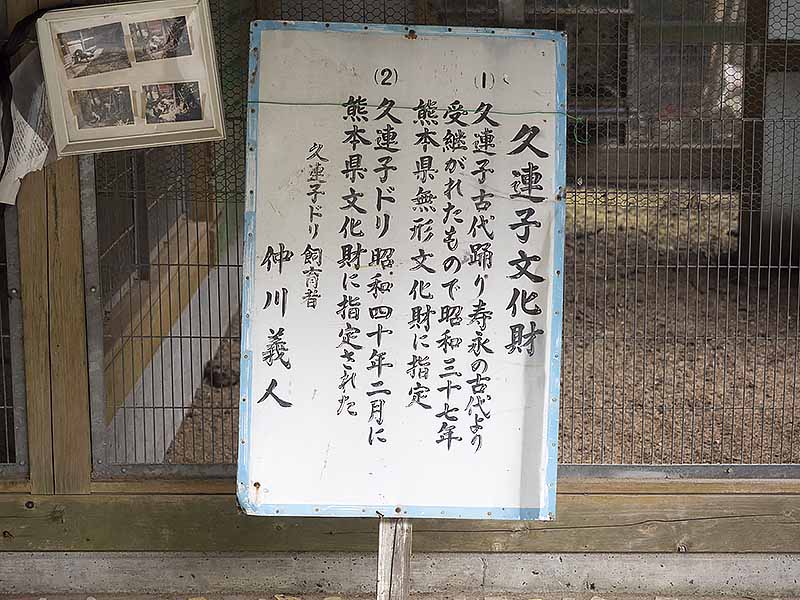 久連子文化財
(1) 久連子古代踊り寿永の古代より
受継がれたもので昭和三十七年
熊本県無形文化財に指定
(2) 久連子ドリ昭和四十年二月に
熊本県文化財に指定された
久連子ドリ飼育者
仲川義人